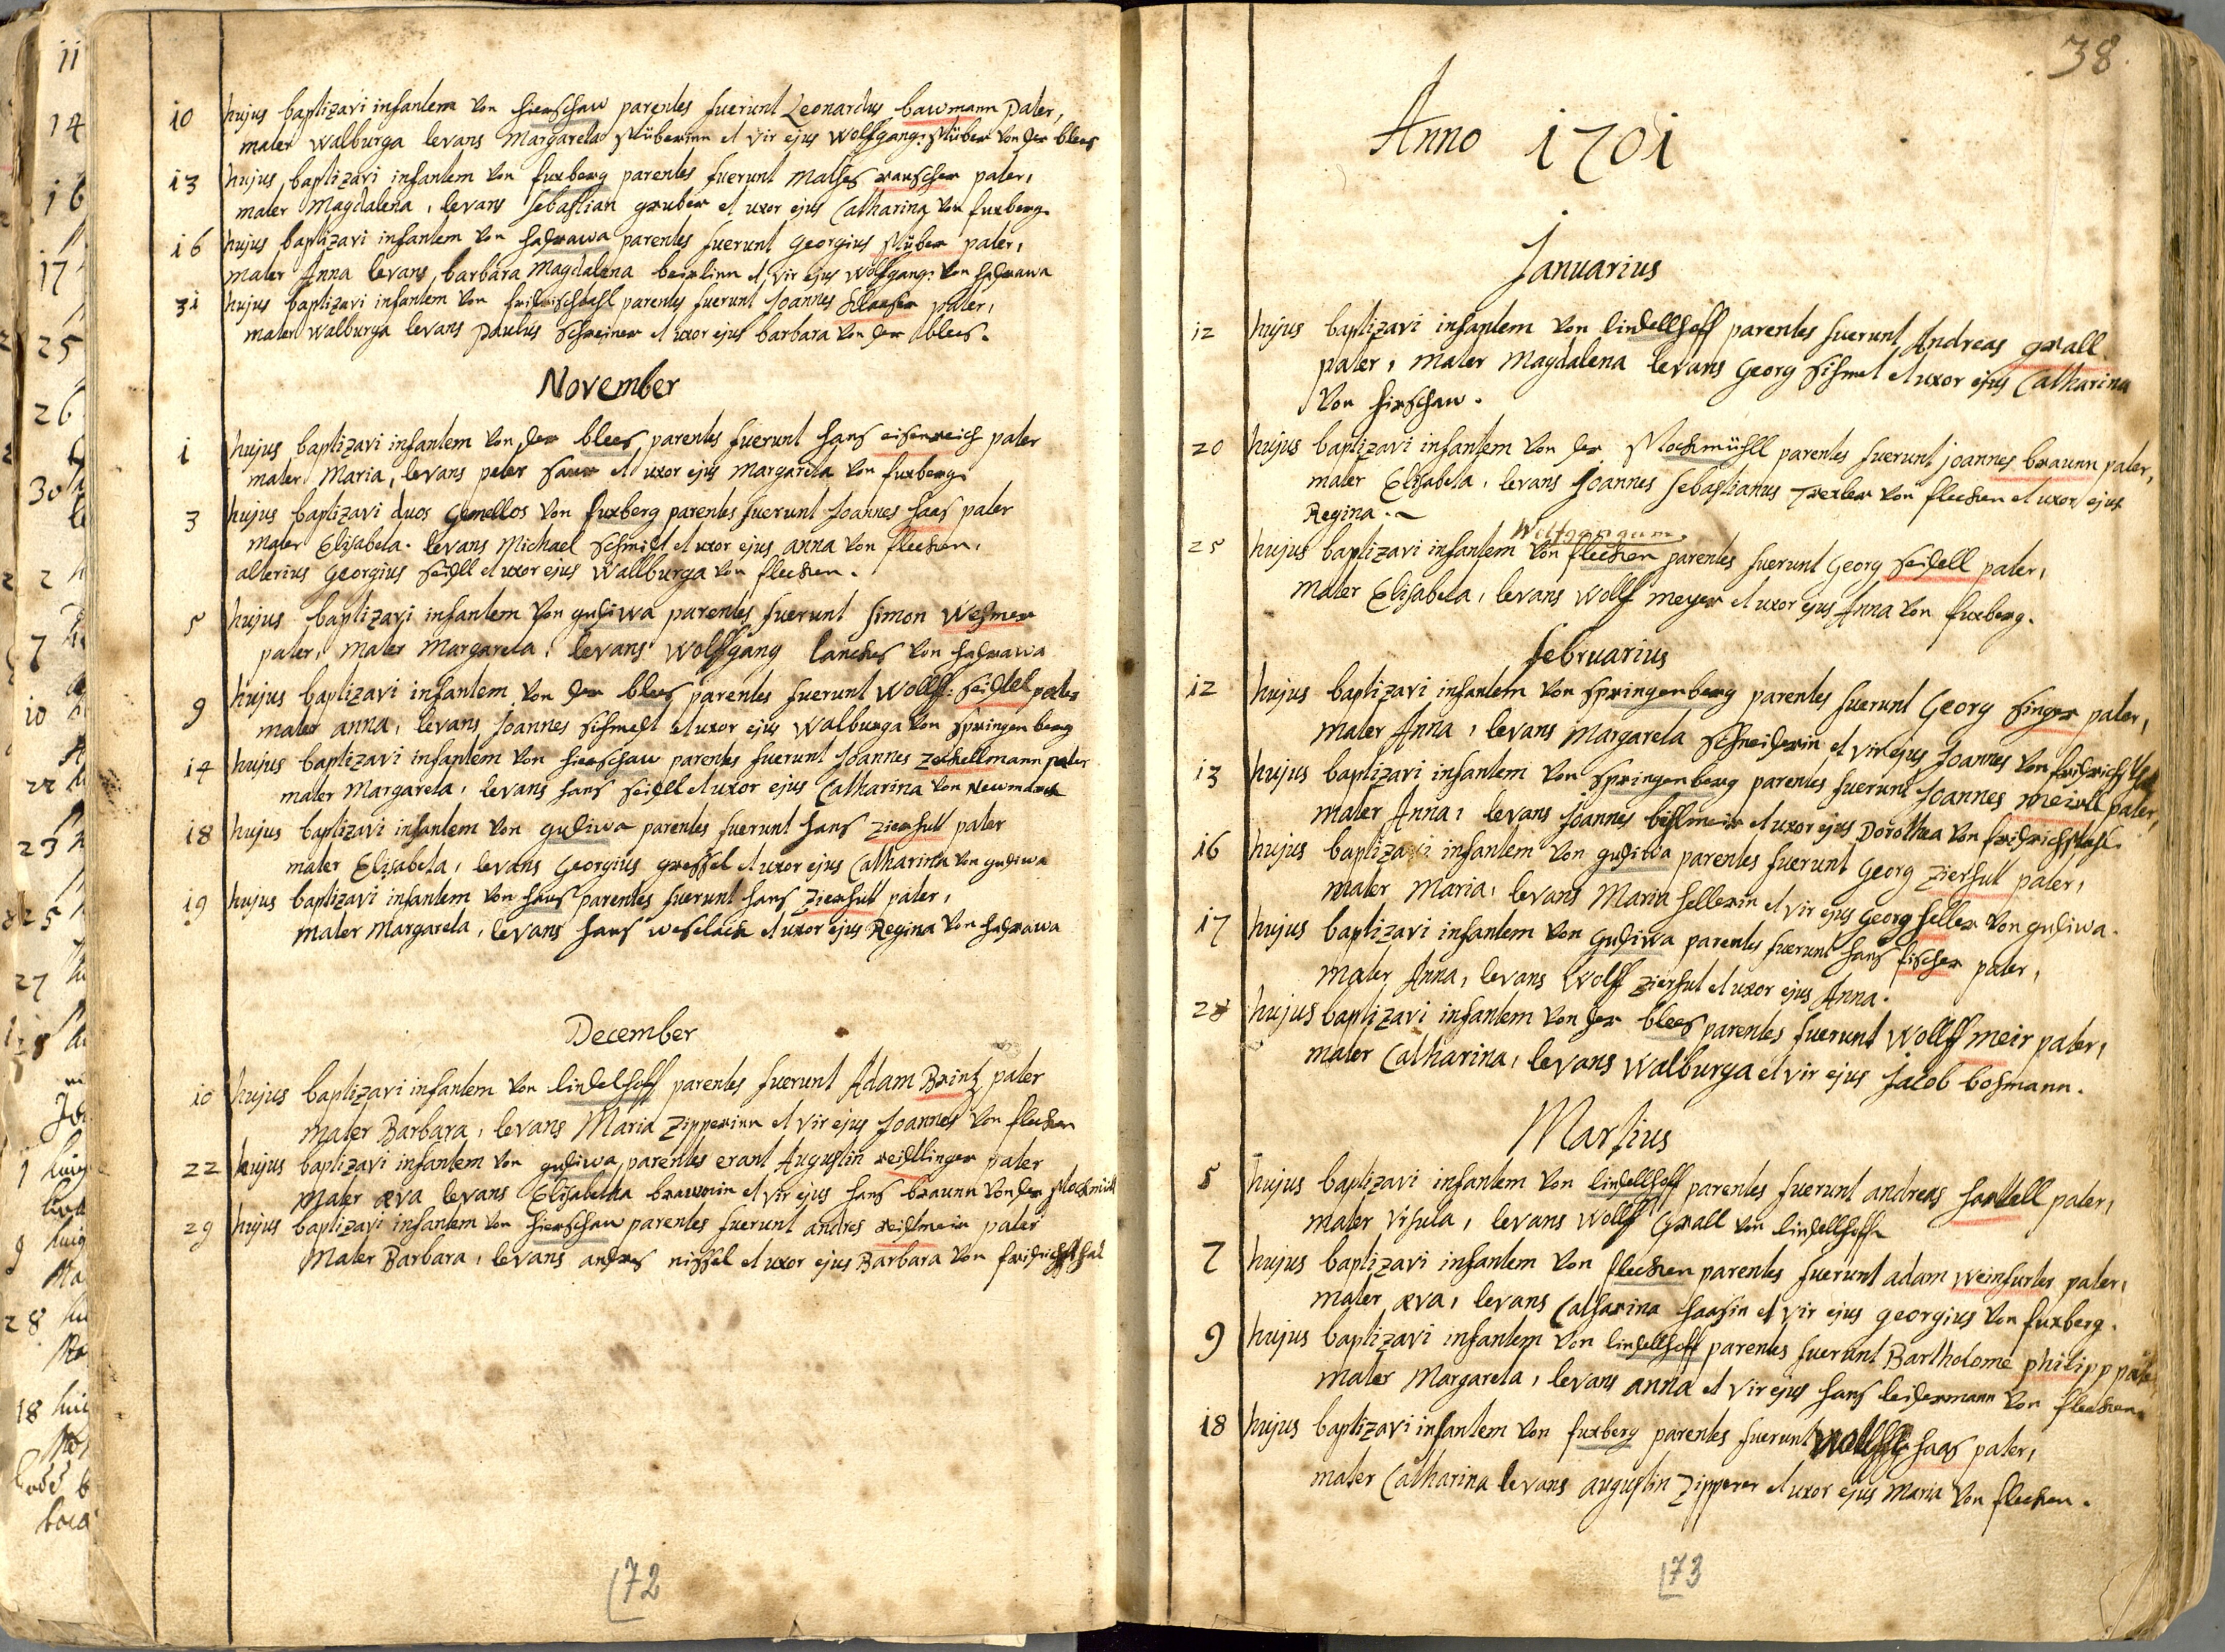 10 hujus baptizavi infantem von hierschaw parentes fuerunt Leonardus bawmann Pater,
mater Walburga levans Margareta stüberinn et vir ejus Wolfgang: stüber von der blees
13 hujus baptizavi infantem von furberg parentes fuerunt Mathes rauscher pater,
mater Magdalena, levans sebastian gruber et uxor ejus Catharina von furberg.
16 hujus baptizavi infantem von hadrawa parentes fuerunt Georgius stüber pater,
mater Anna levans barbara Magdalena beirlinn et vir ejus Wolfgang: von hadrawa
31 hujus baptizavi infantem von fridrischtahl parentes fuerunt Joannes pater,
mater Walburga levans Paulus Schreiner et uxor ejus barbara von der blees.
November
1 hujus baptizavi infantem von der blees parentes fuerunt hans eisenreich pater
mater Maria, levans peter saur et uxor ejus Margareta von furberg
3 hujus baptizavi duos Gemellos von furberg parentes fuerunt Joannes haas pater
mater Elisabeta. levans Michael Schmidt et uxor ejus anna von flecken,
alterius Georgius seidll et uxor ejus Wallburga von flecken.
5 hujus baptizavi infantem von gudiwa parentes fuerunt simon Wesmer
pater, mater Margareta, levans Wolffgang lanckes von hadrawa
9 hujus baptizavi infantem von der blees parentes fuerunt Wolff: seidtl pater
mater anna, levans Joannes et uxor ejus Walburga von springenberg
14 hujus baptizavi infantem von hierschaw parentes fuerunt Joannes zeckellmann pater
mater Margareta, levans hans seidll et uxor ejus Catharina von Newmarck
18 hujus baptizavi infantem von gudiwa parentes fuerunt hans zierhutt pater
mater Elisabeta, levans Georgius gressel et uxor ejus Catharina von gudiwa
19 hujus baptizavi infantem von haus parentes fuerunt hans zierhutt pater,
mater Margareta, levans hans weselack et uxor ejus Regina von hadrawa
December
10 hujus baptizavi infantem von lindelhoff parentes fuerunt Adam Brintz pater
mater Barbara, levans Maria Zipperinn et vir ejus Joannes von flecken
22 hujus baptizavi infantem von gudiwa, parentes erant Augustin reidllinger pater
mater æva levans Elisabetha braunin et vir ejus hans braunn von der stockmüll
29 hujus baptizavi infantem von hierschaw parentes fuerunt andres reidtmeir pater
Mater Barbara, levans andres nissel et uxor ejus Barbara von fridrichsthal
72
38.
Anno 1701
Januarius
12 hujus baptizavi infantem von lindellhoff parentes fuerunt Andreas grall
pater, mater Magdalena levans Georg et uxor ejus Catharina
von hirschaw.
20 hujus baptizavi infantem von der Stockmühll parentes fuerunt joannes braunn pater,
mater Elisabeta, levans Joannes sebastianus Trexler von flecken et uxor ejus
Regina.
Wolfgangum.
25 hujus baptizavi infantem von flecken parentes fuerunt Georg seidell pater,
mater Elisabeta, levans Wolff meyer et uxor ejus Anna von furberg.
februarius
12 hujus baptizavi infantem von springenberg parentes fuerunt Georg singer pater,
mater Anna, levans Margareta Schneiderin et vir ejus Joannes von
13 hujus baptizavi infantem von springenberg parentes fuerunt Joannes meixll pater,
mater Anna, levans Joannes bistmeir et uxor ejus Dorothea von fridrichstahl.
16 hujus baptizavi infantem von gudiwa parentes fuerunt Georg Zierhutt pater,
mater Maria, levans Maria hellerin et vir ejus Georg heller von gudiwa.
17 hujus baptizavi infantem von Gudiwa parentes fuerunt hans fischer pater,
mater Anna, levans Wolff zierhut et uxor ejus Anna.
28 hujus baptizavi infantem von der blees parentes fuerunt Wollff meir pater,
mater Catharina, levans Walburga et vir ejus Jacob bosmann.
Martius
5 hujus baptizavi infantem von lindellhoff parentes fuerunt andreas hartell pater,
mater Ursula, levans Wolff Grall von lindellhoff
7 hujus baptizavi infantem von flecken parentes fuerunt adam weinfurter pater,
mater æva, levans Catharina haasin et vir ejus georgius von furberg.
9 hujus baptizavi infantem von lindellhoff parentes fuerunt Bartholome philipp pater
mater Margareta, levans anna et vir ejus hans leidermann von flecken
18 hujus baptizavi infantem von furberg parentes fuerunt Wolff haas pater,
mater Catharina levans augustin Zipperer et uxor ejus Maria von flecken.
73